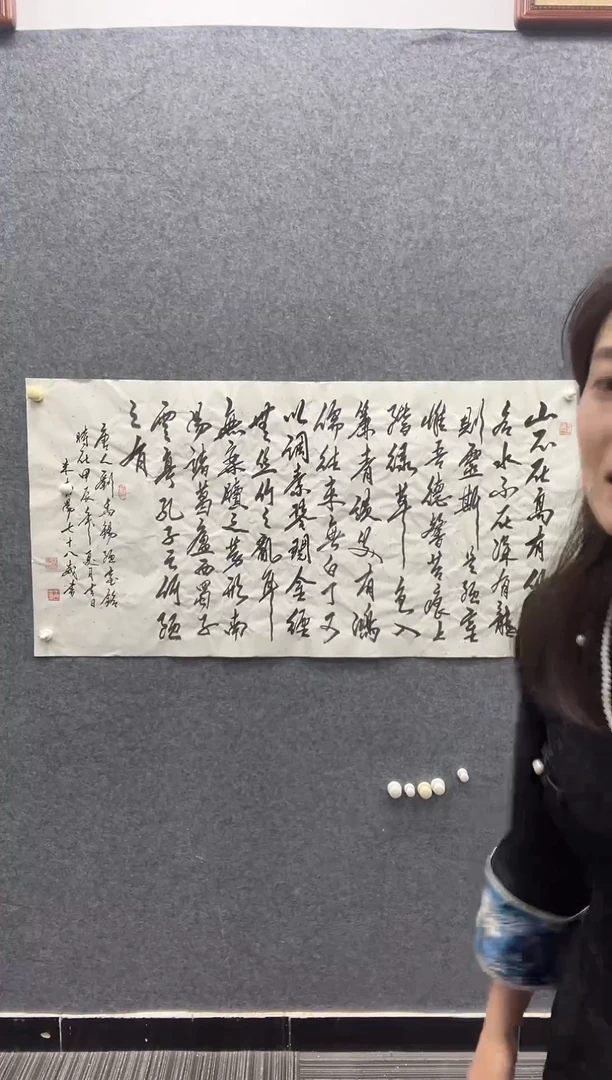 山不在高有
名水不在深有龍
則靈斯是陋室
惟吾德馨苔痕上
階綠草色入
簾青談笑有鴻
儒往來無白丁可
以調素琴閱金經
無絲竹之亂耳
無案牘之勞形南
陽諸葛廬西蜀子
雲亭孔子云何陋
之有
唐人劉禹錫陋室銘
時在甲辰年夏月吉日
七十八歲書